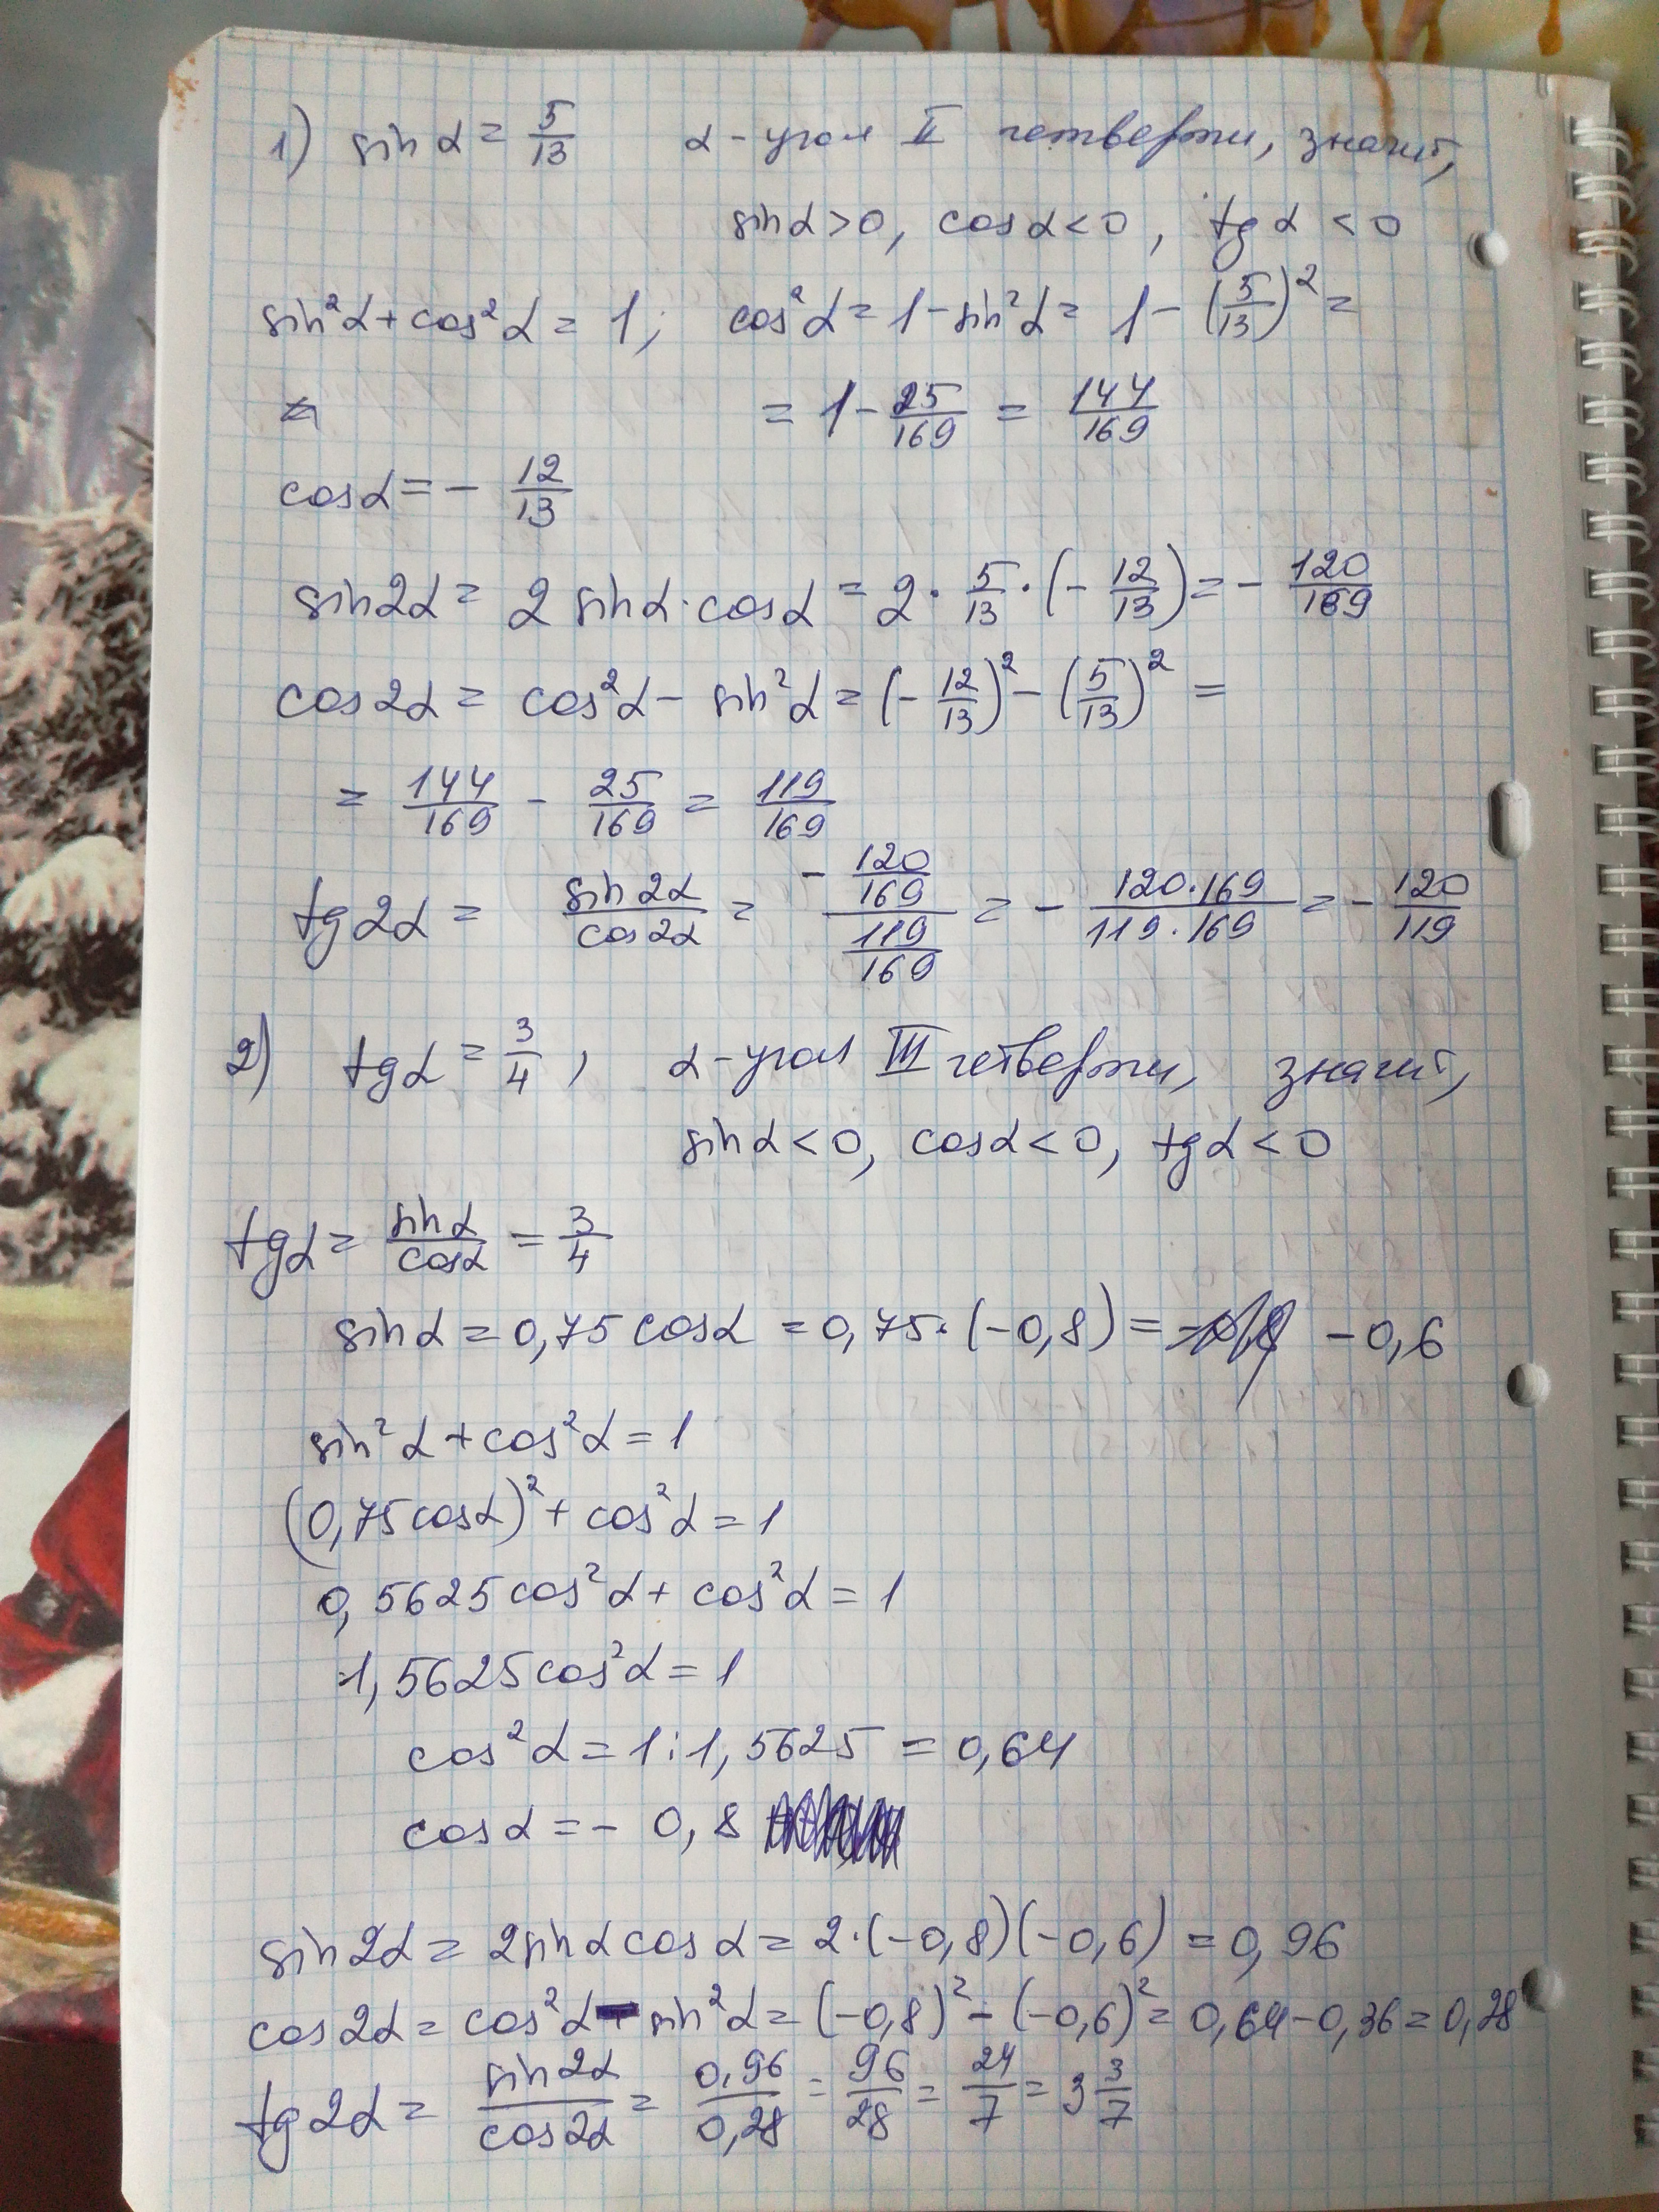 1) sin α = 5/13 α - угол II четверти, значит,
sin α > 0, cos α < 0, tg α < 0
sin²α + cos²α = 1; cos²α = 1 - sin²α = 1 - (5/13)² =
= 1 - 25/169 = 144/169
cos α = - 12/13
sin 2α = 2 sin α · cos α = 2 · 5/13 · (- 12/13) = - 120/169
cos 2α = cos²α - sin²α = (- 12/13)² - (5/13)² =
= 144/169 - 25/169 = 119/169
tg 2α = sin 2α/cos 2α = (- 120/169)/(119/169) = - 120·169/119·169 = - 120/119
2) tg α = 3/4, α - угол III четверти, значит,
sin α < 0, cos α < 0, tg α < 0
tg α = sin α/cos α = 3/4
sin α = 0,75 cos α = 0,75 · (-0,8) = -0,6
sin²α + cos²α = 1
(0,75 cos α)² + cos²α = 1
0,5625 cos²α + cos²α = 1
1,5625 cos²α = 1
cos²α = 1 : 1,5625 = 0,64
cos α = - 0,8
sin 2α = 2 sin α cos α = 2 · (-0,8)(-0,6) = 0,96
cos 2α = cos²α - sin²α = (-0,8)² - (-0,6)² = 0,64 - 0,36 = 0,28
tg 2α = sin 2α/cos 2α = 0,96/0,28 = 96/28 = 24/7 = 3 3/7